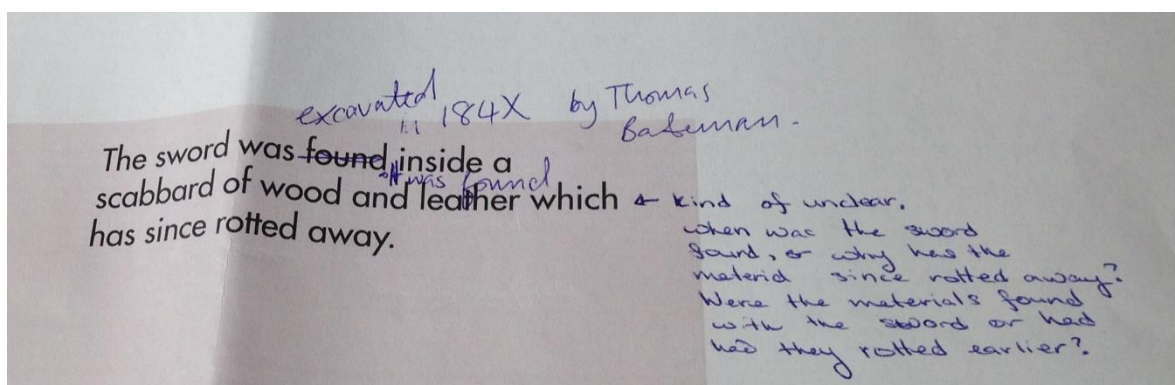 excavated
in 184X by Thomas
Bateman.
The sword was found inside a
It was found
scabbard of wood and leather which
has since rotted away.
← kind of unclear.
when was the sword
found, or why has the
material since rotted away?
Were the materials found
with the sword or had
had they rotted earlier?